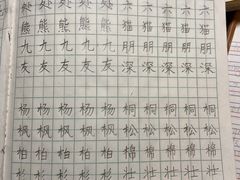 处 处 处 处 六 六 六 六
熊 熊 熊 熊 猫 猫 猫 猫
九 九 九 九 朋 朋 朋 朋
友 友 友 友 深 深 深 深
杨 杨 杨 杨 桐 桐 桐 桐
枫 枫 枫 枫 松 松 松 松
柏 柏 柏 柏 棉 棉 棉 棉
壮 壮 壮 壮